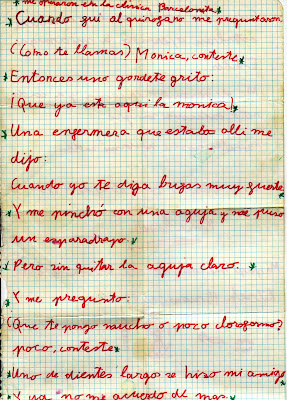 me operaron en la clinica Barcelonita
Cuando gui al quirofaro me preguntaron
(Como te llamas) Monica, conteste
Entonces uno gordete grito:
¡Que ya esta aqui la monica!
Una enfermera que estaba alli me
dijo:
Cuando yo te diga buzas muy fuerte
Y me pinchó con una aguja y me puso
un esparadrapo.
Pero sin quitar la aguja claro.
Y me pregunto:
(Que te pongo mucho o poco cloroformo?
poco, conteste
Uno de dientes largo se hizo mi amigo
Y ya no me acuerdo de mas